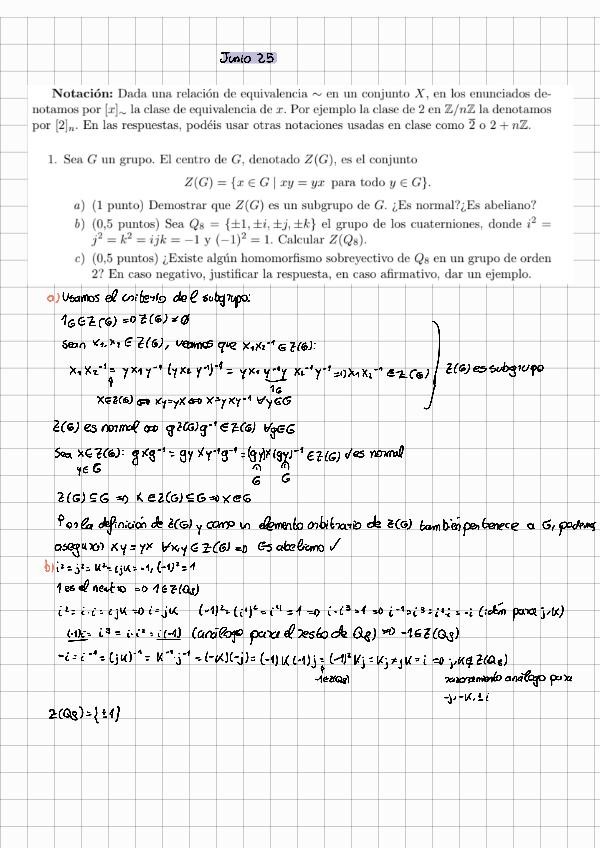 Junio 25
Notación: Dada una relación de equivalencia ∼ en un conjunto X, en los enunciados de-
notamos por [x]∼ la clase de equivalencia de x. Por ejemplo la clase de 2 en ℤ/nℤ la denotamos
por [2]ₙ. En las respuestas, podéis usar otras notaciones usadas en clase como 2̅ o 2 + nℤ.
1. Sea G un grupo. El centro de G, denotado Z(G), es el conjunto
Z(G) = {x ∈ G | xy = yx para todo y ∈ G}.
a) (1 punto) Demostrar que Z(G) es un subgrupo de G. ¿Es normal?¿Es abeliano?
b) (0,5 puntos) Sea Q₈ = {±1, ±i, ±j, ±k} el grupo de los cuaterniones, donde i² =
j² = k² = ijk = −1 y (−1)² = 1. Calcular Z(Q₈).
c) (0,5 puntos) ¿Existe algún homomorfismo sobreyectivo de Q₈ en un grupo de orden
2? En caso negativo, justificar la respuesta, en caso afirmativo, dar un ejemplo.
a) Usamos el criterio del subgrupo:
1G ∈ Z(G) ⇒ Z(G) ≠ ∅
Sean x₁, x₂ ∈ Z(G), veamos que x₁x₂⁻¹ ∈ Z(G):
x₁x₂⁻¹ = yx₁y⁻¹(yx₂y⁻¹)⁻¹ = yx₁y⁻¹y x₂⁻¹y⁻¹ ⇒ x₁x₂⁻¹ ∈ Z(G) Z(G) es subgrupo
1G
x∈Z(G) ⇔ xy=yx ⇔ x=yxy⁻¹ ∀y∈G
Z(G) es normal ⇔ gZ(G)g⁻¹ ∈ Z(G) ∀g∈G
Sea x∈Z(G): gxg⁻¹ = gyxy⁻¹g⁻¹ = (gy)x(gy)⁻¹ ∈ Z(G) ✓ es normal
y∈G G G
Z(G) ⊆ G ⇒ x ∈ Z(G) ⊆ G ⇒ x∈G
Por la definición de Z(G) y como un elemento arbitrario de Z(G) también pertenece a G, podemos
asegurar xy = yx ∀x,y ∈ Z(G) ⇒ Es abeliano ✓
b) i² = j² = k² = ijk = -1, (-1)² = 1
1 es el neutro ⇒ 1∈Z(Q₈)
i² = i·i = ijk ⇒ i = jk (-1)² = (i²)² = i⁴ = 1 ⇒ i·i³ = 1 ⇒ i⁻¹ = i³ = i²·i = -i (idem para j, k)
(-1)i = i³ = i·i² = i(-1) (análogo para el resto de Q₈) ⇒ -1∈Z(Q₈)
-i = i⁻¹ = (jk)⁻¹ = k⁻¹·j⁻¹ = (-k)(-j) = (-1)k(-1)j = (-1)²kj = kj ≠ jk = i ⇒ j,k ∉ Z(Q₈)
-1∈Z(Q₈) razonamiento análogo para
-j, -k, ±i
Z(Q₈) = {±1}